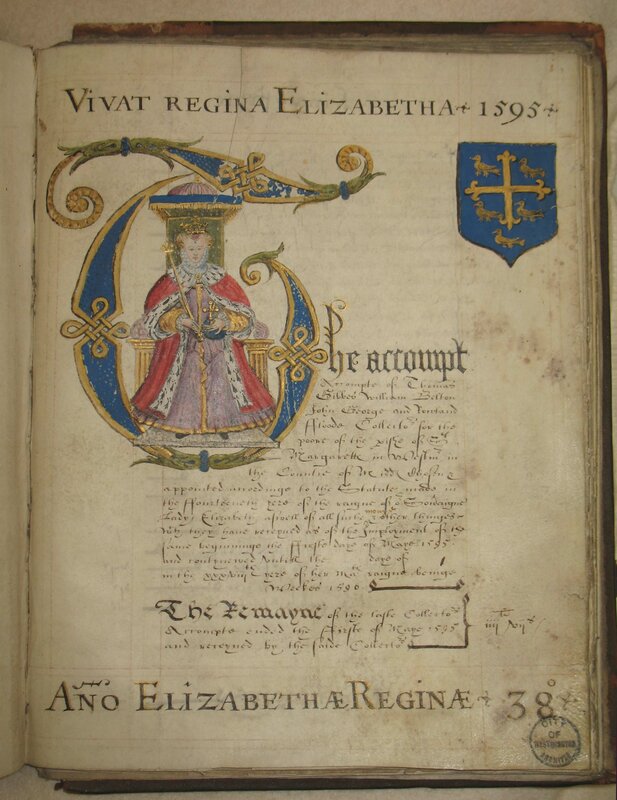 VIVAT REGINA ELIZABETHA 1595
The accompt
Accompte of Thomas
Gibbes William Belton
John George and Rowland
Collectors for the
poore of the of
Margarette in in
the Countie of Midd
appointed accordinge to the Statute made in
the ffourteenth yere of the raigne of
Lady Elizabeth aswell of all suche other thinges
they have receyved as of the Imployment of the
same beginninge the ffirste daye of Maye 1595
and contynewed untill the daye of
in the xxxviiith yere of her Ma raigne beinge
1596
The Remayne of the laste Collectors
Accompte ended the ffirste of Maye 1595
and receyved by the saide Collectors
AÑO ELIZABETHÆ REGINÆ 38°
CITY
OF
WESTMINSTER
ARCHIVES